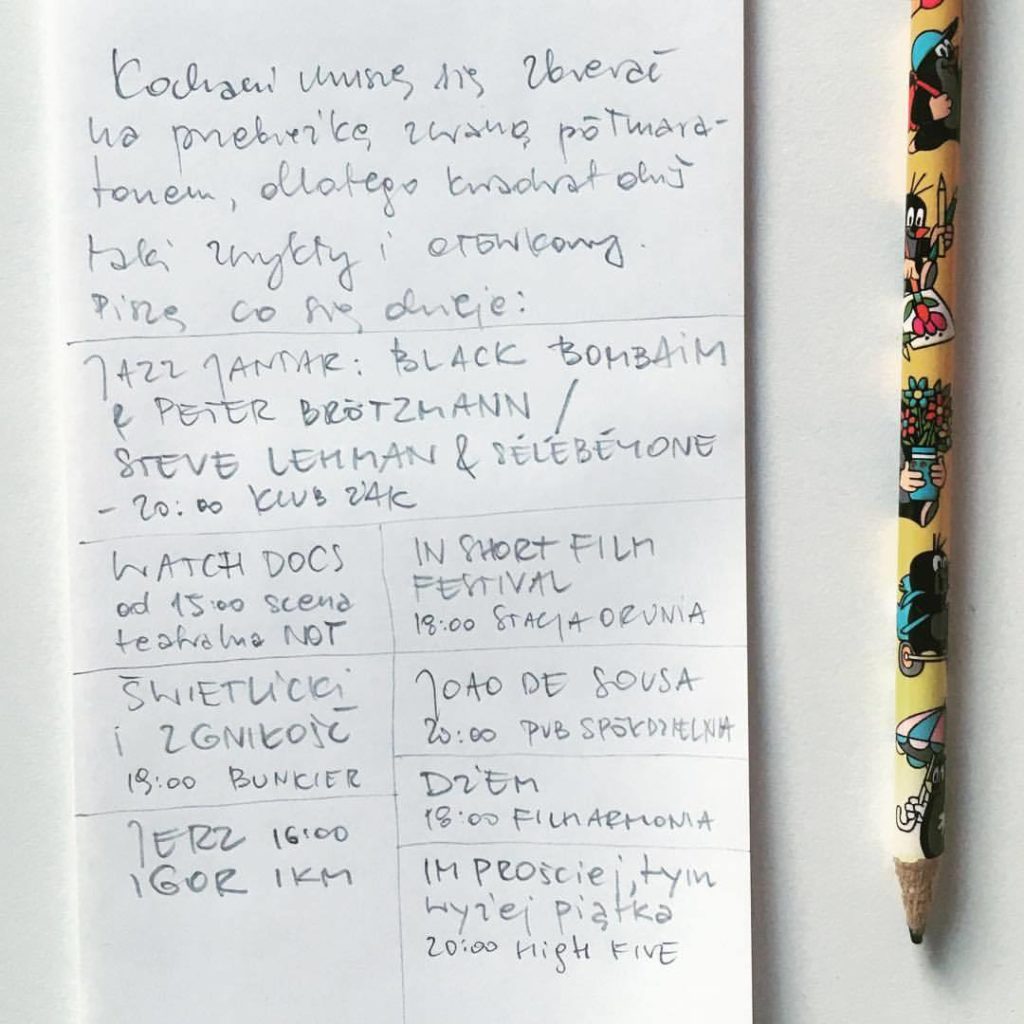 Kochani muszę się zbierać
na przebieżkę zwaną półmara-
tonem, dlatego kwadrat dziś
taki zwykły i ołówkowy.
Piszę co się dzieje:
JAZZ JANTAR: BLACK BOMBAIM
& PETER BRÖTZMANN /
STEVE LEHMAN & SÉLÉBÉYONE
- 20:00 KLUB ŻAK
WATCH DOCS
od 15:00 scena
teatralna NOT
ŚWIETLICKI
i ZGNIŁOŚĆ
19:00 BUNKIER
JERZ 16:00
IGOR IKM
IN SHORT FILM
FESTIVAL
18:00 STACJA ORUNIA
JOAO DE SOUSA
20:00 PUB SPÓŁDZIELNIA
DŻEM
18:00 FILHARMONIA
IM PROŚCIEJ, tym
wyżej piątka
20:00 HIGH FIVE